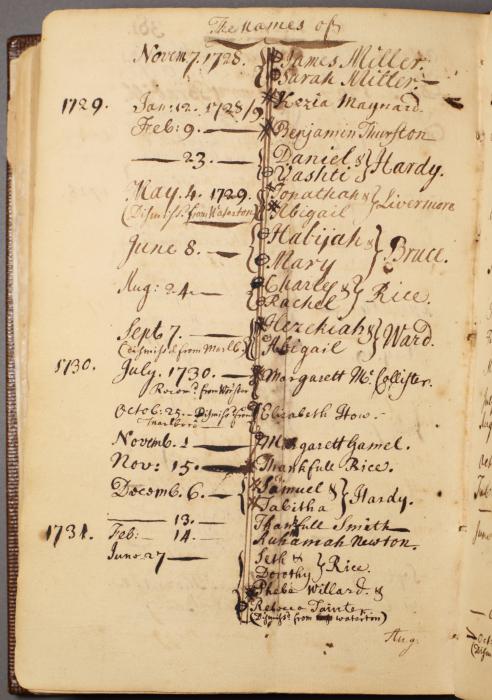 The Names of
Novem.7.1728. James Miller.
Sarah Miller
1729. Jan:12. 1728/9 Kezia Maynard.
Feb: 9. Benjamin Thurston
23. Daniel & Hardy.
Vashti
May. 4. 1729. Jonathan & Livermore
(Dismiss'd from Waterton) Abigail
June 8. Habijah & Bruce.
Mary
Aug: 24. Charles & Rice.
Rachel
Sept 7. Hezekiah & Ward.
(Dismiss'd from Marlb) Abigail
1730. July. 1730. Margarett Mc Collister.
Recom.d from Worster
Octob: 25. Dismiss'd from Elizabeth How.
Marlboro
Novemb. 1 Margarett Gamel.
Nov: 15. Thankfull Rice.
Decemb. 6. Samuel & Hardy.
Tabitha
13. Thankfull Smith
1731. Feb: 14. Ruhamah Newton.
June 27 Seth & Rice.
Dorothy
Pheba Willard. &
Rebecca Tainter.
(Dismiss'd from waterton)
Aug.